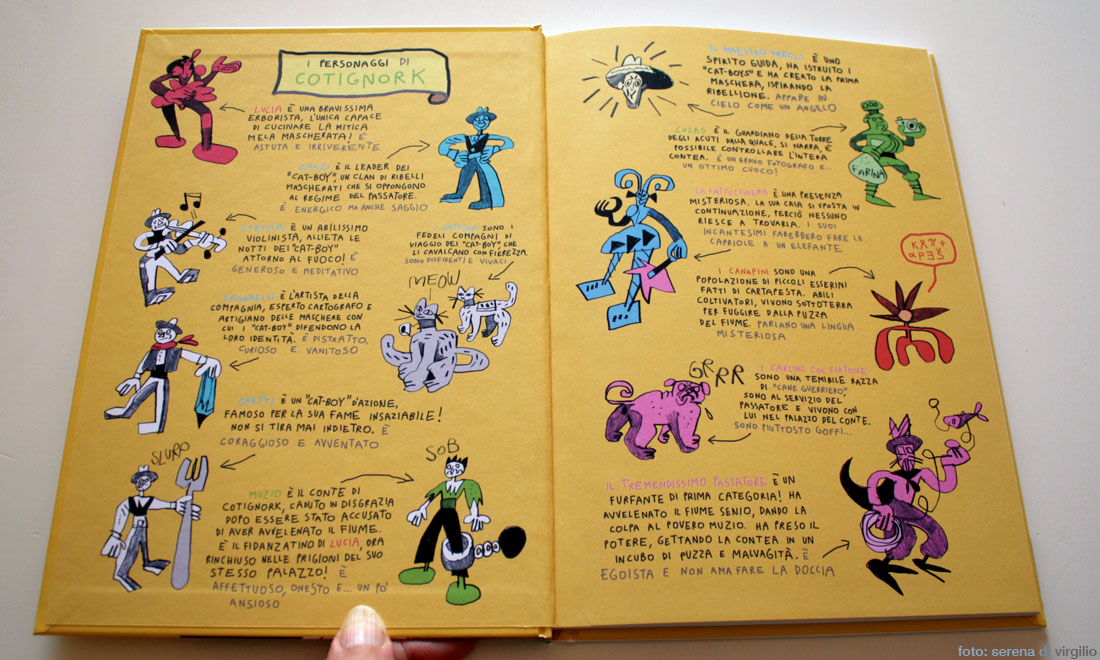 I PERSONAGGI DI
COTIGNORK
LUCIA È UNA BRAVISSIMA
ERBORISTA, L'UNICA CAPACE
DI CUCINARE LA MITICA
MELA MASCHERATA! È
ASTUTA E IRRIVERENTE
È IL LEADER DEI
"CAT-BOY", UN CLAN DI RIBELLI
MASCHERATI CHE SI OPPONGONO
AL REGIME DEL PASSATORE.
È ENERGICO MA ANCHE SAGGIO
È UN ABILISSIMO
VIOLINISTA, ALLIETA LE
NOTTI DEI "CAT-BOY"
ATTORNO AL FUOCO! È
GENEROSO E MEDITATIVO
I GATTONI SONO I
FEDELI COMPAGNI DI
VIAGGIO DEI "CAT-BOY", CHE
LI CAVALCANO CON FIEREZZA.
SONO DIFFIDENTI E VIVACI
MEOW
ZAGANELLI È L'ARTISTA DELLA
COMPAGNIA, ESPERTO CARTOGRAFO E
ARTIGIANO DELLE MASCHERE CON
CUI I "CAT-BOY" DIFENDONO LA
LORO IDENTITÀ. È DISTRATTO,
CURIOSO E VANITOSO
GHETTI È UN "CAT-BOY" D'AZIONE,
FAMOSO PER LA SUA FAME INSAZIABILE!
NON SI TIRA MAI INDIETRO. È
CORAGGIOSO E AVVENTATO
SLURP
SOB
MUZIO È IL CONTE DI
COTIGNORK, CADUTO IN DISGRAZIA
DOPO ESSERE STATO ACCUSATO
DI AVER AVVELENATO IL FIUME.
È IL FIDANZATINO DI LUCIA, ORA
RINCHIUSO NELLE PRIGIONI DEL SUO
STESSO PALAZZO! È
AFFETTUOSO, ONESTO E... UN PO'
ANSIOSO
IL MAESTRO VAROLI È UNO
SPIRITO GUIDA, HA ISTRUITO I
"CAT-BOYS" E HA CREATO LA PRIMA
MASCHERA, ISPIRANDO LA
RIBELLIONE. APPARE IN
CIELO COME UN ANGELO
COLAS È IL GUARDIANO DELLA TORRE
DEGLI ACUTI DALLA QUALE, SI NARRA, È
POSSIBILE CONTROLLARE L'INTERA
CONTEA. È UN BRAVO FOTOGRAFO E...
UN OTTIMO CUOCO!
FARINA
LA FATTUCCHIERA È UNA PRESENZA
MISTERIOSA. LA SUA CASA SI SPOSTA IN
CONTINUAZIONE, PERCIÒ NESSUNO
RIESCE A TROVARLA. I SUOI
INCANTESIMI FAREBBERO FARE LE
CAPRIOLE A UN ELEFANTE
I CANAPINI SONO UNA
POPOLAZIONE DI PICCOLI ESSERINI
FATTI DI CARTAPESTA. ABILI
COLTIVATORI, VIVONO SOTTOTERRA
PER FUGGIRE DALLA PUZZA
DEL FIUME. PARLANO UNA LINGUA
MISTERIOSA
GRRR
I CARLINI COL FIATONE
SONO UNA TEMIBILE RAZZA
DI "CANE GUERRIERO",
SONO AL SERVIZIO DEL
PASSATORE E VIVONO CON
LUI NEL PALAZZO DEL CONTE.
SONO PIUTTOSTO GOFFI...
IL TREMENDISSIMO PASSATORE È UN
FURFANTE DI PRIMA CATEGORIA! HA
AVVELENATO IL FIUME SENIO, DANDO LA
COLPA AL POVERO MUZIO. HA PRESO IL
POTERE, GETTANDO LA CONTEA IN UN
INCUBO DI PUZZA E MALVAGITÀ. È
EGOISTA E NON AMA FARE LA DOCCIA
foto: serena di virgilio